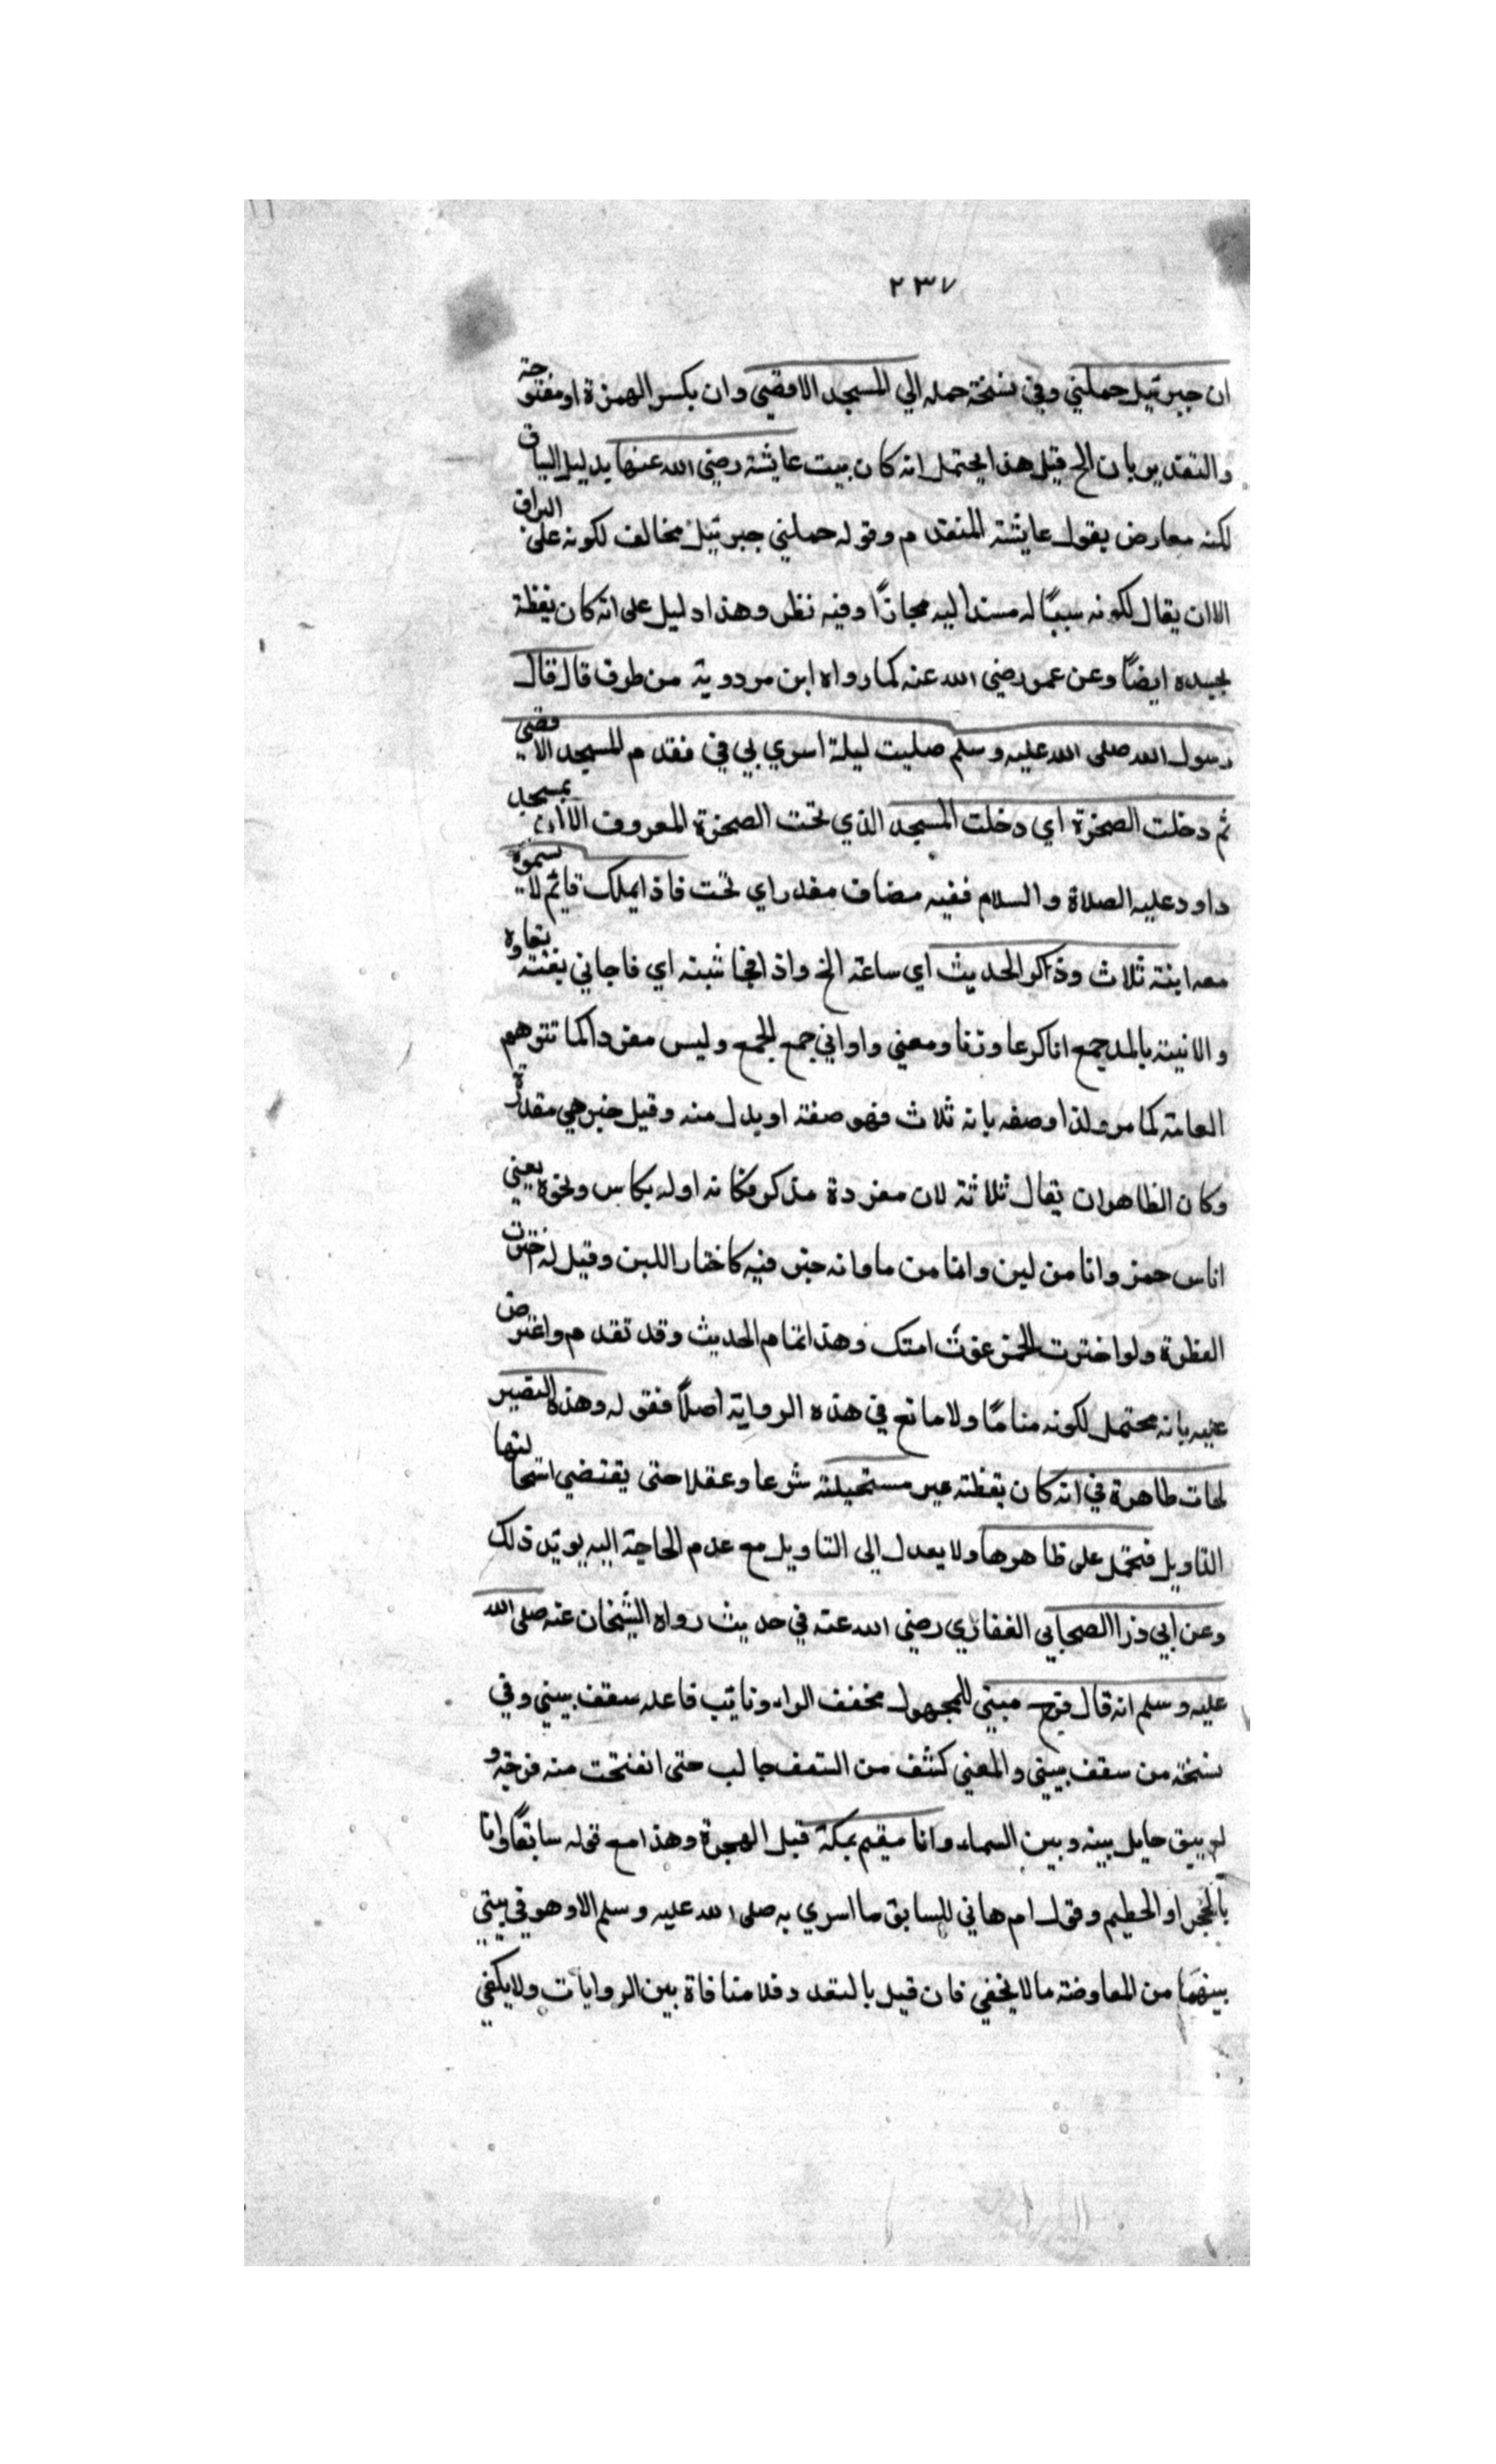 ٢٣٧
ان جبرئيل حملني وفي نسخة حمله الي المسجد الاقصي وان بكسر الهمزة او مفتوحة
والتقدير بان الخ قيل هذا يحتمل انه كان ببيت عايشة رضي الله عنها بدليل السياق
لكنه معارض بقول عايشة المتقدم وقوله حملني جبرئيل مخالف لكونه على البراق
الا ان يقال لكونه سببًا له مسندا اليه مجازًا وفيه نظر وهذا دليل على انه كان يقظة
بجسده ايضًا وعن عمر رضي الله عنه كما رواه ابن مردوية من طرف قال قال
رسول الله صلى الله عليه وسلم صليت ليلة اسري بي في مقدم المسجد الاقصي
ثم دخلت الصخرة اي دخلت المسجد الذي تحت الصخرة المعروف الاان بمسجد
داود عليه الصلاة والسلام ففيه مضاف مقدر اي تحت فاذا بملك قايم لا يسموه
معه انية ثلاث وذكر الحديث اي ساعة الخ واذا فجائيته اي فاجاني بغتة
والانية بالمد جمع انا كرعا وزنا ومعني واواني جمع الجمع وليس مفردا كما تتوهم
العامة كما مر ولذا وصفه بانه ثلاث فهو صفة او بدل منه وقيل خبر هي مقدرة
وكان الظاهر ان يقال ثلاثة لان مفرده مذكر فكانه اوله بكاس ونحوه يعني
اناس خمر وانا من لبن وانا من ما وانه خير فيه فاختار اللبن وقيل له اخترت
الفطرة ولو اخترت الخمر غوت امتك وهذا تمام الحديث وقد تقدم واعترض
عليه بانه محتمل لكونه منامًا ولا مانع في هذه الرواية اصلًا فقوله وهذه التصير
لحات ظاهرة في انه كان يقظة غير مستحيلة شرعا وعقلا حتى يقتضي استحالتها
التاويل فتحمل على ظاهرها ولا يعدل الى التاويل مع عدم الحاجة اليه يويد ذلك
وعن ابي ذر الصحابي الغفاري رضي الله عنه في حديث رواه الشيخان عنه صلى الله
عليه وسلم انه قال فرج مبني للمجهول مخفف الراء ونايب فاعله سقف بيتي وفي
نسخة من سقف بيتي والمعني كشف من السقف جانب حتى انفتحت منه فرجة و
لم يبق حايل بينه وبين السماء وانا مقيم بمكة قبل الهجرة وهذا مع قوله سابقًا وانا
بالحجر او الحطيم وقول ام هاني السابق ما اسري به صلى الله عليه وسلم الا وهو في بيتي
بينهما من المعاوضة ما لا يخفي فان قيل بالتعدد فلا منافاة بين الروايات ولا يكفي